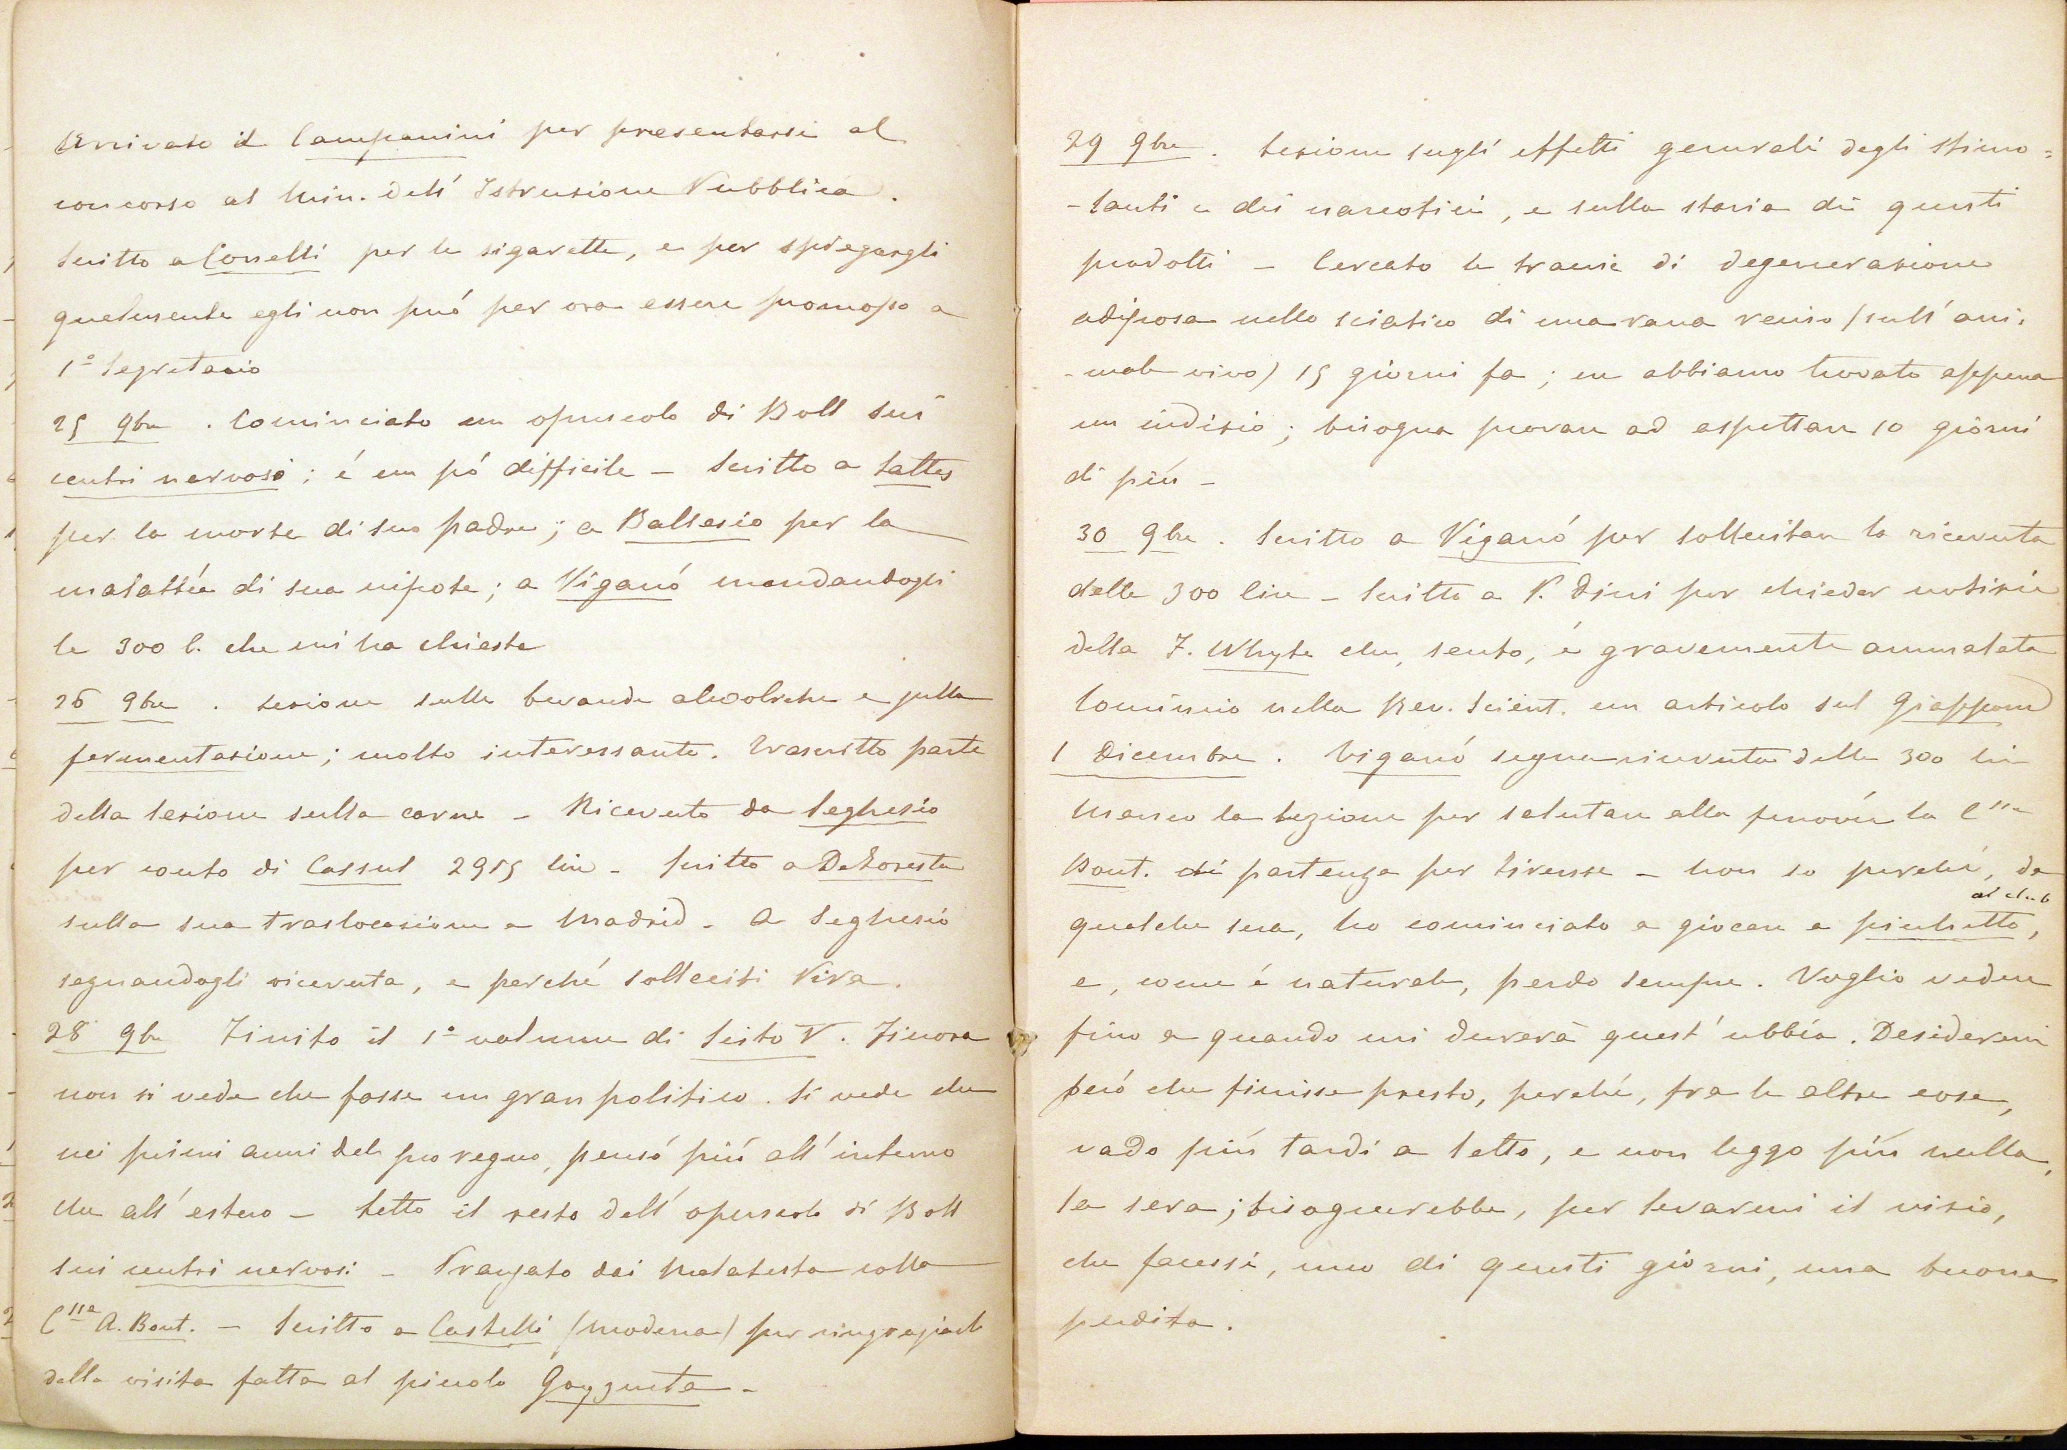 Arrivato il Campanini per presentarsi al
concorso al Min. dell' Istruzione Pubblica.
Scritto a Conelli per le sigarette, e per spiegargli
qualmente egli non può per ora essere promosso a
1° Segretario
25 9bre. Cominciato un opuscolo di Boll sui
centri nervosi; é un pó difficile - Scritto a
per la morte di suo padre; a Ballesio per la
malattia di sua nipote; a Viganó mandandogli
le 300 l. che mi ha chieste
26 9bre. Lezione sulle bevande alcooliche e sulla
fermentazione; molto interessante. Trascritto parte
della lezione sulla carne - Ricevuto da Seghesio
per conto di Cassul 2915 lire - Scritto a DeForesta
sulla sua traslocazione a Madrid - A Seghesio
segnandogli ricevuta, e perché solleciti Viva.
28 9bre Finito il 1° volume di Sisto V. Finora
non si vede che fosse un gran politico. Si vede che
nei primi anni del suo regno, pensó più all' interno
che all' estero - Letto il resto dell' opuscolo di Boll
sui centri nervosi - Pranzato dai Malatesta colla
C.lla A. Bout. - Scritto a Castelli (Modena) per ringraziarlo
della visita fatta al piccolo
29 9bre. Lezione sugli effetti generali degli stimo=
-lanti e dei narcotici, e sulla storia di questi
prodotti - Cercato le traccie di degenerazione
adiposa nello sciatico di una rana reciso (sull' ani-
-male vivo) 15 giorni fa; ne abbiamo trovato appena
un indizio; bisogna provare ad aspettare 10 giorni
di più -
30 9bre. Scritto a Viganó per sollecitare la ricevuta
delle 300 lire - Scritto a P. Dini per chieder notizie
della F. Whyte che, sento, é gravemente ammalata
Comincio nella Rev. Scient. un articolo sul Giappone
1 Dicembre. Viganó segna ricevuta delle 300 lire
Manco la lezione per salutare alla ferrovia la C.lla
Bout. di partenza per Firenze - Non so perché, da
qualche sera, ho cominciato a giocare a picchetto, al club
e, come é naturale, perdo sempre. Voglio vedere
fino a quando mi durerà quest' ubbía. Desidererei
peró che finisse presto, perché, fra le altre cose,
vado più tardi a letto, e non leggo più nulla,
la sera; bisognerebbe, per levarmi il vizio,
che facessi, uno di questi giorni, una buona
perdita.